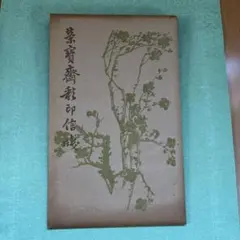 榮寶齋彩印信箋